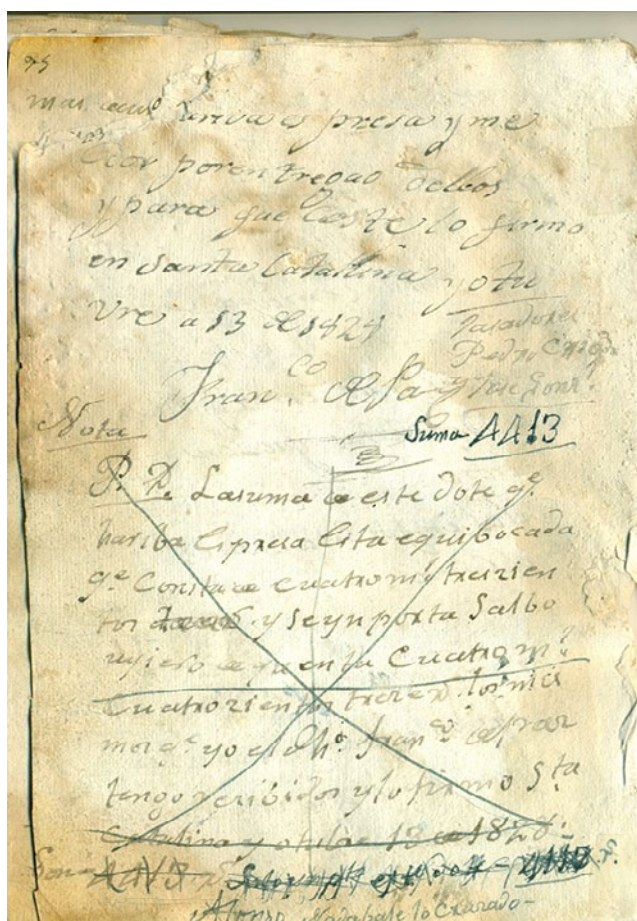 arriva es presa y me
por entregao dellos
y para que Coste lo firmo
en Santa Catalina y otu
vre a 13 de 1829
Tasadores
Pedro
Fran.co de Pa y Jose Gonz.
Nota
Suma 4413
P. D. La suma de este Dote q.e
harriba Espresa Esta equibocada
q.e Consta de Cuatro mil trescien
tos y se ynporta Salbo
en la Cuatro m.l
Cuatrozientos treze r. los mis
mos q.e yo el dho. Fran.co de Paz
tengo recibidos y lo firmo S.ta
Catalina y otubre 13 de 1829.
4413
Alonso, Nada bale lo Cruzado-